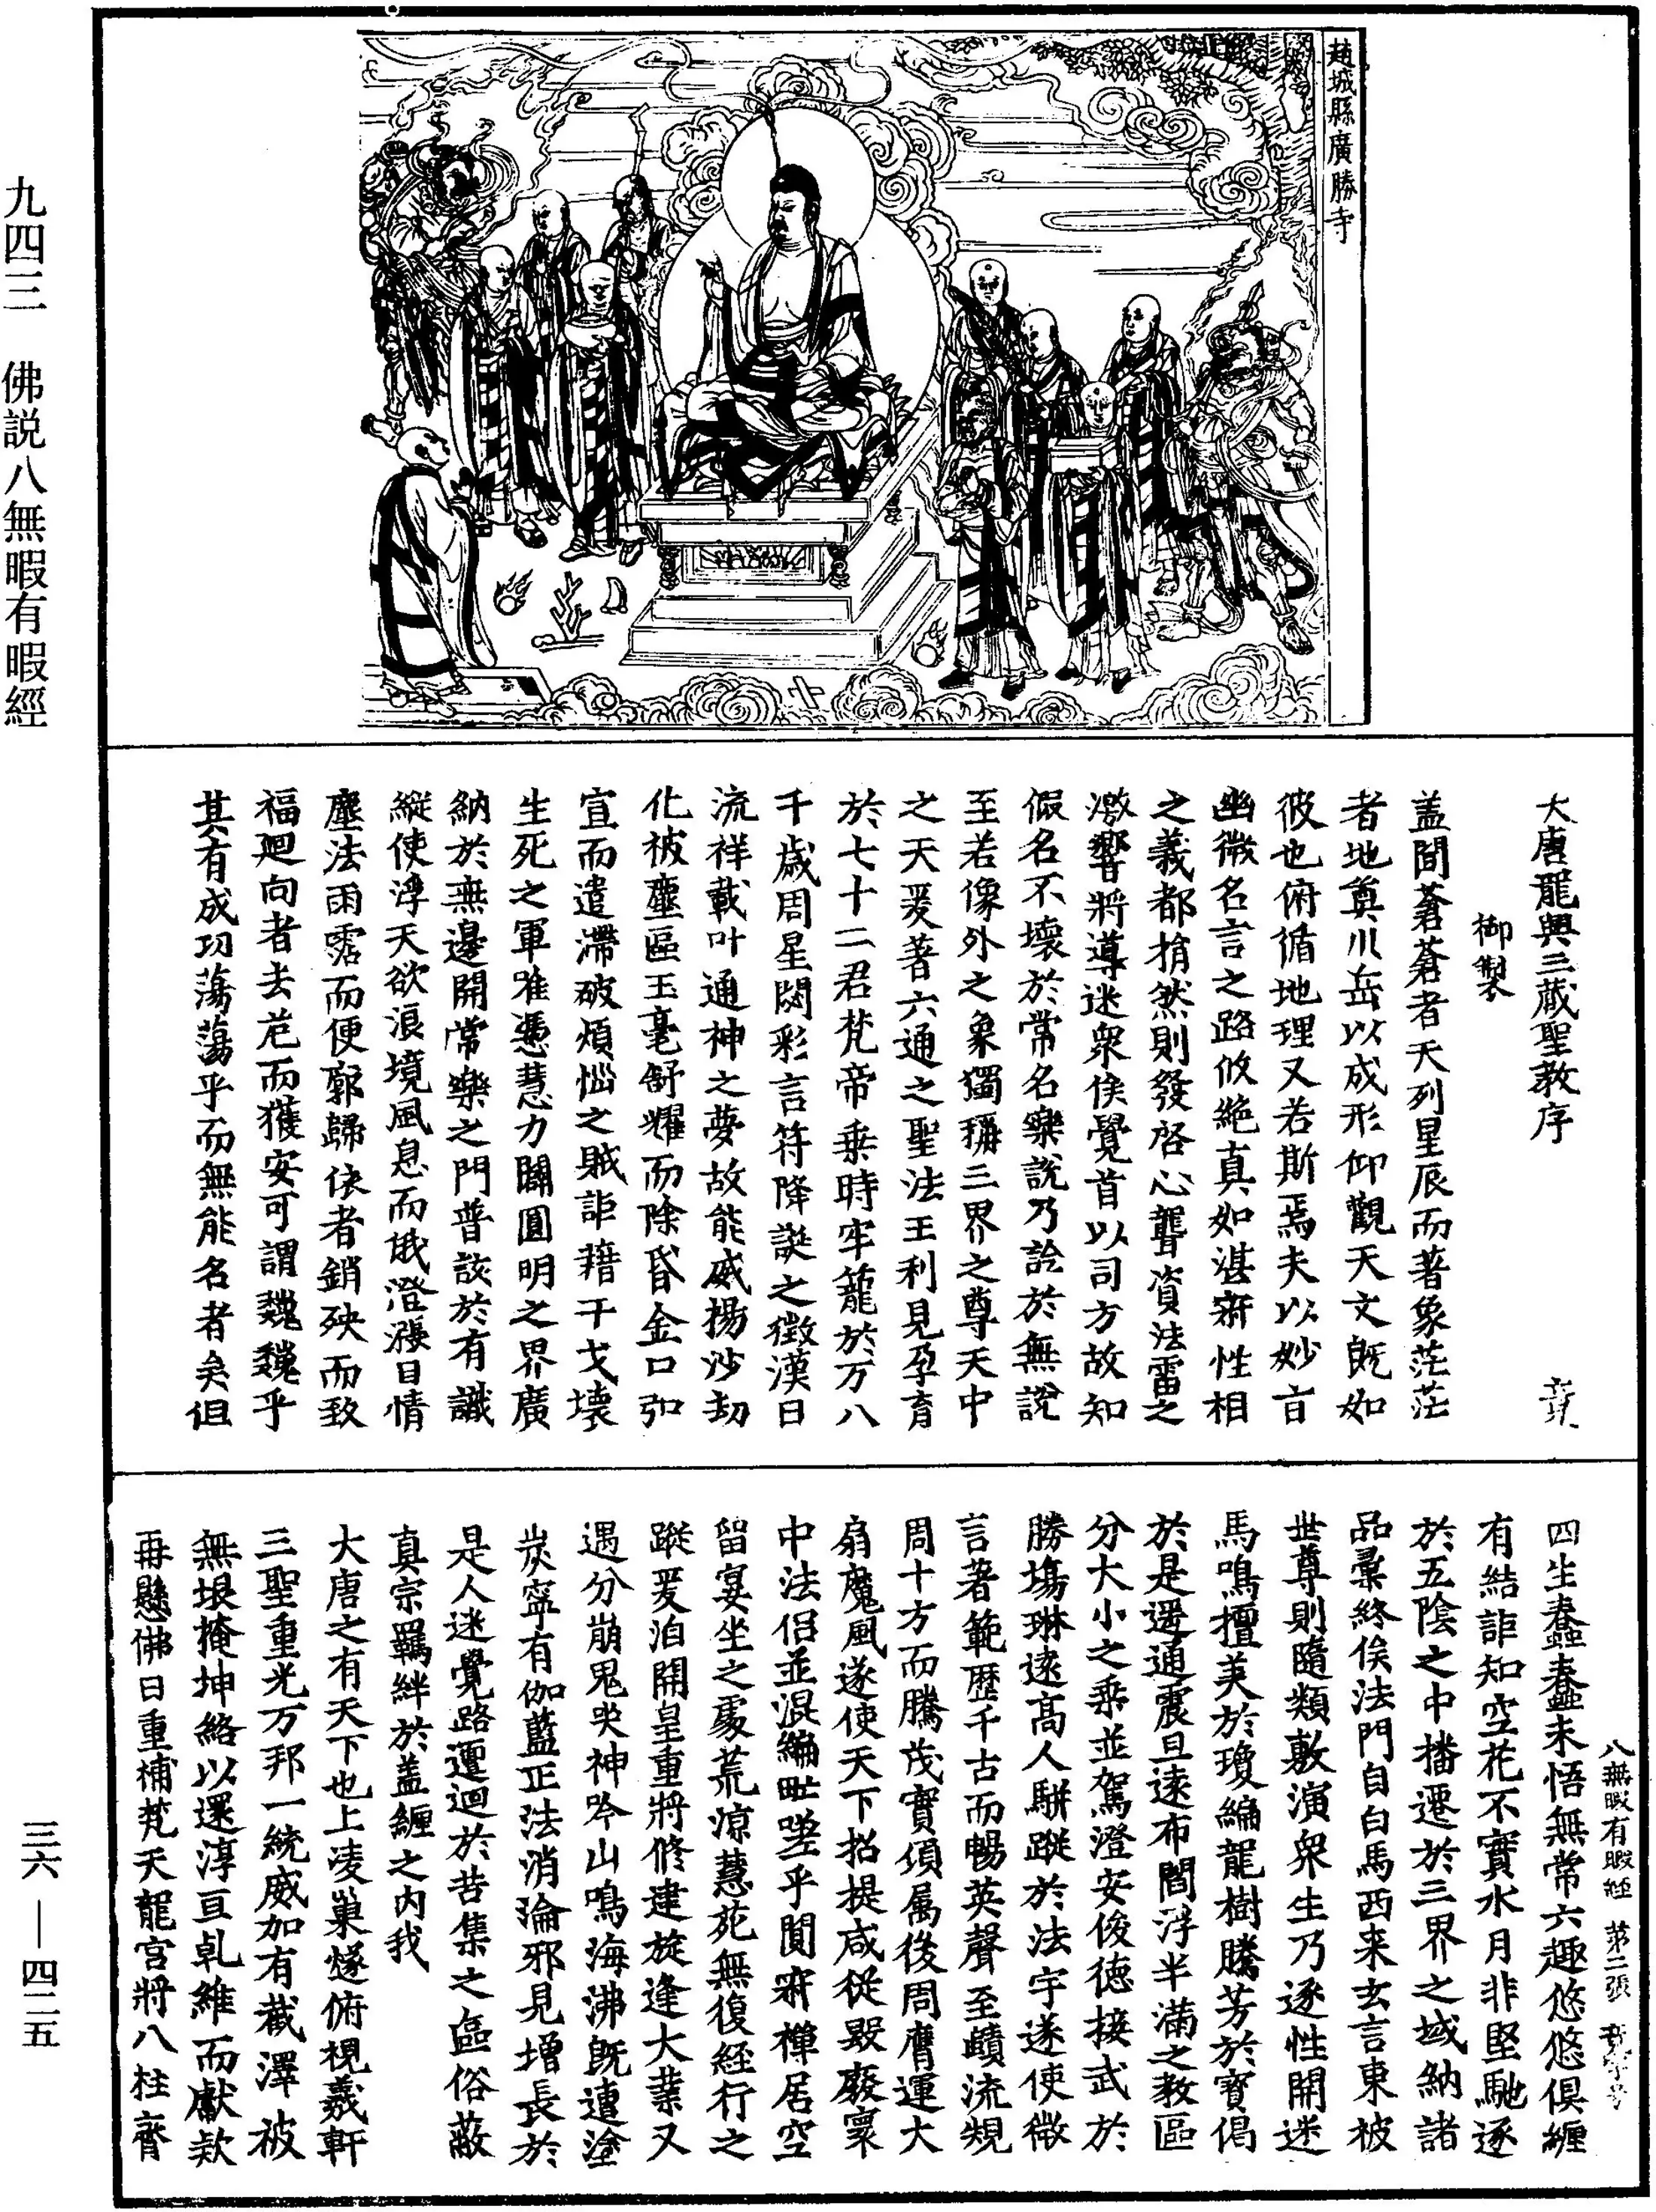 九四三　佛説八無暇有暇經
三六—四二五
趙城縣廣勝寺
大唐龍興三藏聖教序
御製
盖聞蒼蒼者天列星辰而著象茫茫
者地奠川岳以成形仰觀天文既如
彼也俯循地理又若斯焉夫以妙旨
幽微名言之路攸絶真如湛寂性相
之義都捐然則發啓心聾資法雷之
激響將導迷衆俟覺首以司方故知
假名不壞於常名樂說乃詮於無說
至若像外之象獨稱三界之尊天中
之天爰著六通之聖法王利見孕育
於七十二君梵帝乗時牢籠於万八
千歳周星閟彩言符降誕之徵漢日
流祥載叶通神之夢故能威揚沙刧
化被塵區玉毫舒耀而除昏金口弘
宣而遣滯破煩惱之賊詎藉干戈壞
生死之軍唯憑慧力闢圓明之界廣
納於無邊開常樂之門普該於有識
縱使浮天欲浪境風息而俄澄漲日情
塵法雨霑而便廓歸依者銷殃而致
福廻向者去危而獲安可謂巍巍乎
其有成功蕩蕩乎而無能名者矣但
八無暇有暇經　第二張
四生蠢蠢未悟無常六趣悠悠俱纏
有結詎知空花不實水月非堅馳逐
於五陰之中播遷於三界之域納諸
品彙終俟法門自白馬西来玄言東被
世尊則隨類敷演衆生乃逐性開迷
馬鳴擅美於瓊編龍樹騰芳於寳偈
於是遐通震旦遠布閻浮半滿之教區
分大小之乘並駕澄安俊徳接武於
勝塲琳遠高人駢蹤於法宇遂使微
言著範歴千古而暢英聲至賾流規
周十方而騰茂實湏属後周膺運大
扇魔風遂使天下招提咸従毀廢寰
中法侶並混編甿嗟乎閴寂禪居空
留宴坐之處荒凉慧苑無復経行之
蹤爰洎開皇重將修建旋逢大業又
遇分崩鬼哭神吟山鳴海沸既遭塗
炭寧有伽藍正法消淪邪見増長於
是人迷覺路邅迴於苦集之區俗蔽
真宗羈絆於盖纏之内我
大唐之有天下也上凌巢燧俯視羲軒
三聖重光万邦一統威加有截澤被
無垠掩坤絡以還淳亘乹維而獻欵
再懸佛日重補梵天龍宮將八柱齊